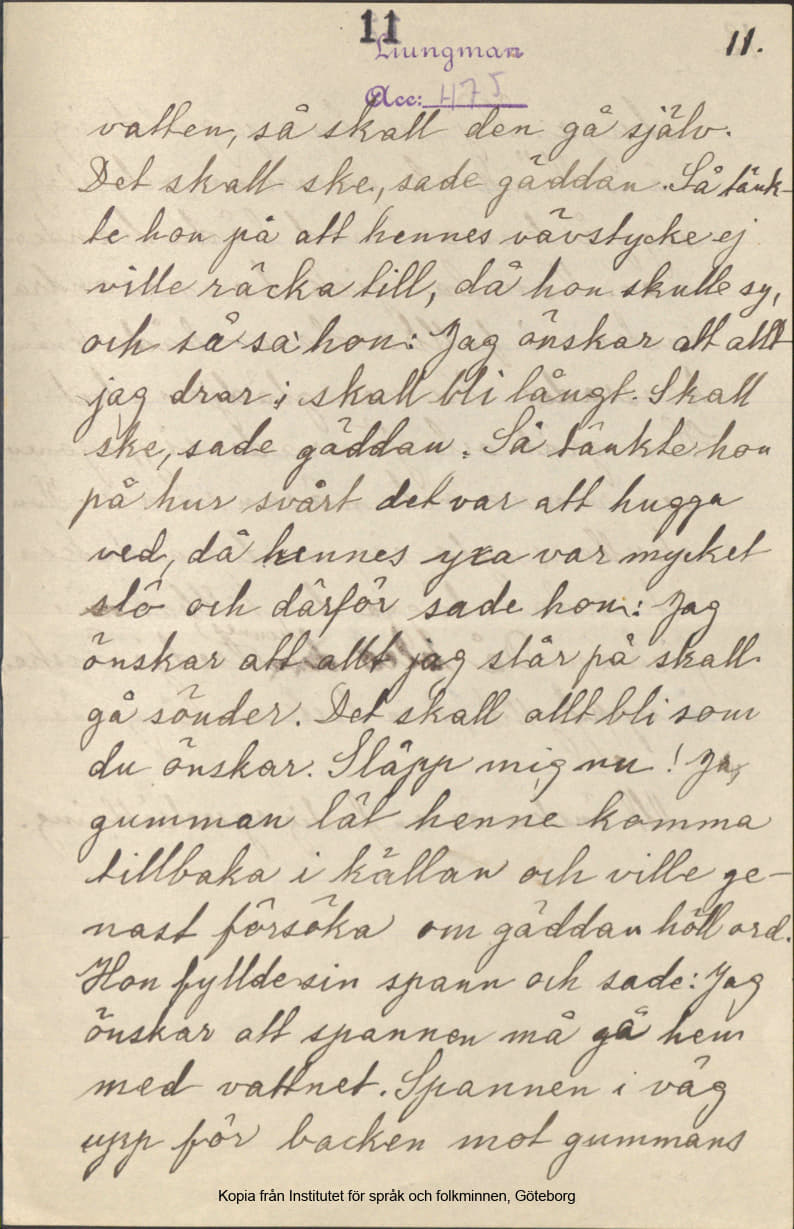 11
11.
Ljungman
Acc: 475
vatten, så skall den gå själv.
Det skall ske, sade gäddan. Så tänk-
te hon på att hennes vävstycke ej
ville räcka till, då hon skulle sy,
och så sa' hon: Jag önskar att allt
jag drar i skall bli långt. Skall
ske, sade gäddan. Så tänkte hon
på hur svårt det var att hugga
ved, då hennes yxa var mycket
slö och därför sade hon: Jag
önskar att allt jag slår på skall
gå sönder. Det skall allt bli som
du önskar. Släpp mig nu! Ja,
gumman lät henne komma
tillbaka i källan och ville ge-
nast försöka om gäddan höll ord.
Hon fyllde sin spann och sade: Jag
önskar att spannen må gå hem
med vattnet. Spannen i väg
upp för backen mot gummans
Kopia från Institutet för språk och folkminnen, Göteborg